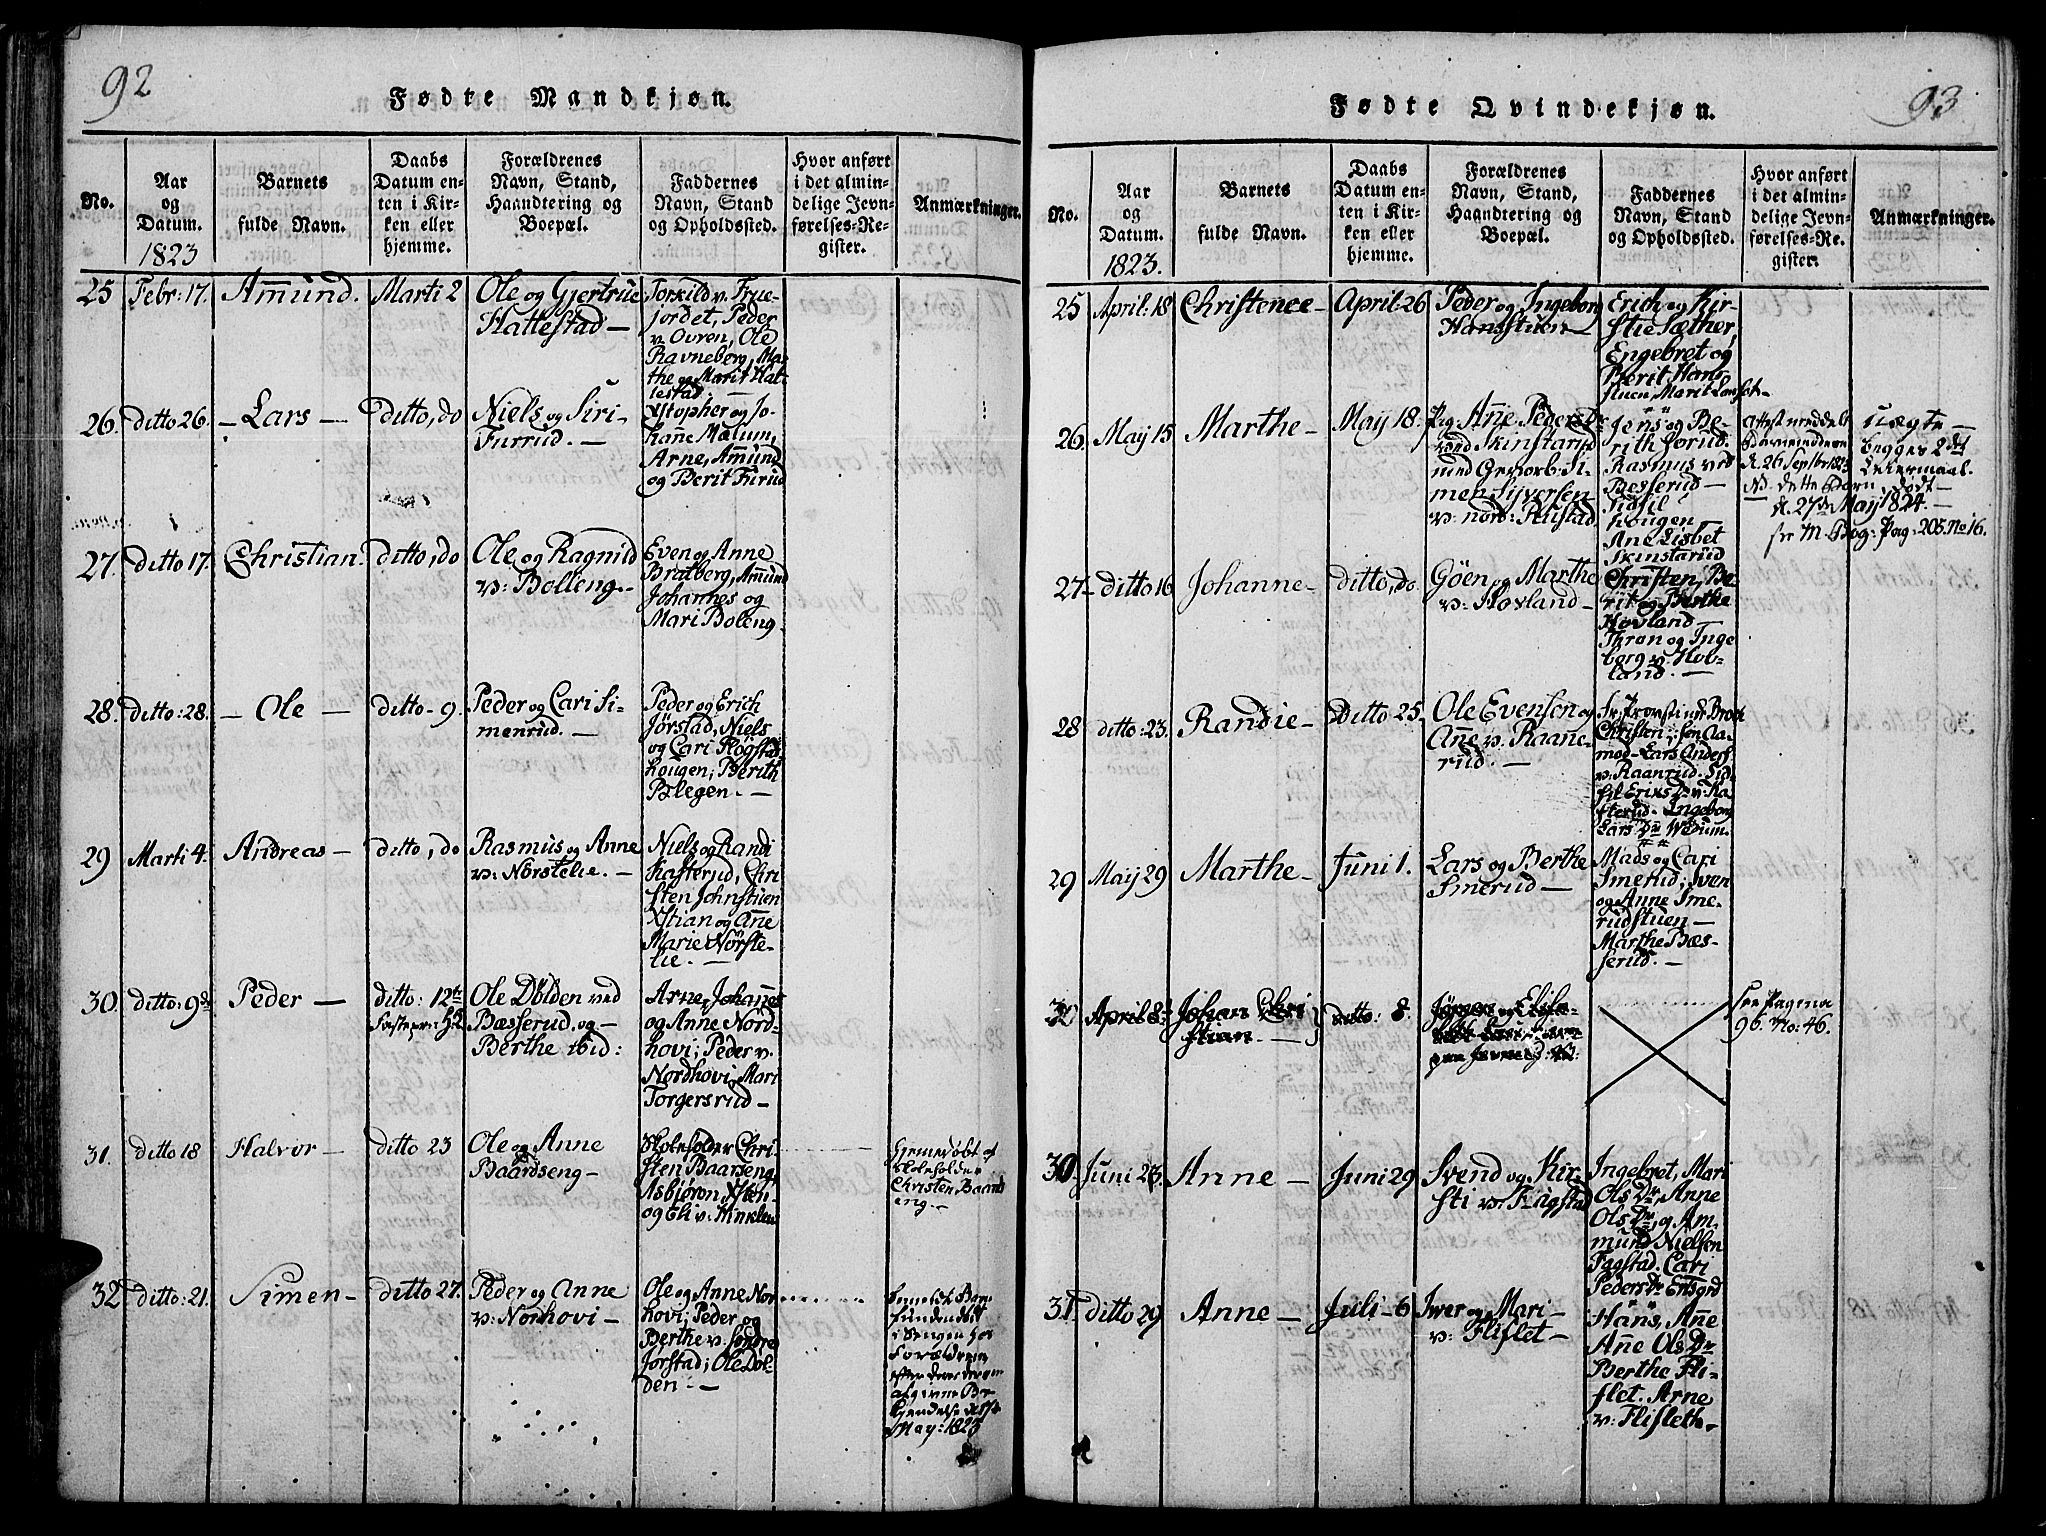 92
Fødte Mandkjøn.
No.
Aar
og
Datum.
1823
Barnets
fulde Navn.
Daabs
Datum en-
ten i Kir-
ken eller
hjemme.
Forældrenes
Navn, Stand,
Haandtering og
Boepæl.
Faddernes
Navn, Stand
og Opholdssted.
Hvor anført
i det almin-
delige Jevn-
førelses-Re-
gister.
Anmærkninger.
25
Febr: 17.
Amund.
Marti 2
Ole og Gjertrue
Hattestad —
Torkild v. True-
jordet, Peder
v. Ovren, Ole
Ravneberg, Mar-
the og Marit Hat-
testad. —
26.
ditto 26.
— Lars —
ditto, do
Niels og Siri
Furrud. —
Xstopher og Jo-
hane Mælum,
Arne, Amund
og Berit Furud
27.
ditto 17.
Christian.
ditto, do
Ole og Ragnild
v: Bolleng. -
Even og Anne
Bratberg, Amund
Johannes og
Mari Boleng.
28.
ditto: 28.
— Ole —
ditto - 9.
Peder og Cari Si-
menrud. —
Peder og Erich
Jørstad, Niels
og Cari Flogstad
hougen; Berith
Blegen. —
29
Marti 4.
Andreas —
ditto, do
Rasmus og Anne
v: Nørstelie. —
Niels og Randi
Kasterud, Chri
sten Johnstuen
Xstian og Ane
Marie Nørste-
lie. —
30.
ditto: 9de
Peder —
ditto: 12te
Ole Dølden ved
Bæsserud, og —
Berthe ibid:
Arne, Johanes
og Anne Nord-
hovi; Peder v.
Nordhovi, Mari
Torgersrud —
31.
ditto 18
Halvor —
ditto 23
Ole og Anne
Baardseng —
Skoleholder Chri-
sten Baarseng,
Asbjøron, Xsten
og Eli v: Winklen
hjemedøbt af
Skoleholder
Christen Baards
eng. —
32
ditto: 21.
Simen —
ditto 27.
Peder og Anne
v: Nordhovi —
Ole og Anne Nor
hovi; Peder og
Berthe v. Søndre
Jorstad; Ole Døl-
den. —
fundet dødt
i Sengen hos
Forældrene
May: 1823
93
Fødte Qvindekjøn.
No.
Aar
og
Datum.
1823.
Barnets
fulde Navn.
Daabs
Datum en-
ten i Kir-
ken eller
hjemme.
Forældrenes
Navn, Stand,
Haandtering og
Boepæl.
Faddernes
Navn, Stand
og Opholdssted.
Hvor anført
i det almin-
delige Jevn-
førelses-Re-
gister.
Anmærkninger.
25
April: 18
Christence —
April: 26
Peder og Ingeborg
Hansstuen —
Erich og Kir-
stie Sæther,
Engebret og
Berit Hans-
stuen, Marit
26.
May 15
Marthe —
May 18.
Pig Ane Pedersdr
ved Skinstarud
med Si-
men Syversen
v: nord: Rustad
Jens og Be-
rith Sorud.
Rasmus ved
Besserud —
Sidsil
hougen
Ane Lisbet
Skinstarud
Attest meddelt
d. 26 Septbr 1823
NB. dette Barn død
d. 27de May 1824. —
se M. Bog: Pag: 205. No 16.
uægte —
begges 2det
Leiermaal.
27 -
ditto 16
Johanne —
ditto, do.
Göen og Marthe
v: Hovland —
Christen, Be-
rit og Berthe
Hovland —
Thron og Inge
borg v. Hov-
land. —
28
ditto: 23.
Randie —
ditto 25.
Ole Evensen og
Ane v. Raane-
rud. —
Christen
Lars Anders
v: Raanrud. Sid-
sil Erixsdr v:
Ingeborg
Lars Dr
29
May 29
Marthe —
Juni 1.
Lars og Berthe
Smerud —
Mads og Cari
Smerud; Sven
og Anne Sme-
rudstuen —
Marthe Bæs-
serud. —
30
April 8
Johan Chri
stian. —
ditto: 8.
see Pagina
96. No: 46.
30.
Juni 23.
Anne —
Juni 29
Svend og Kir-
sti v: Fagstad
Ingebret, Mari
Ols Dr, Anne
Ols Dr, og Am-
mund Nielsen
Fagstad. Cari
Peders Dr
31.
ditto 29
Anne —
Juli - 6
Iver og Mari —
v: Fliflet —
Hans, Ane
Ane Ols Dr
Berthe Fli-
flet. Arne
v: Flifleth —